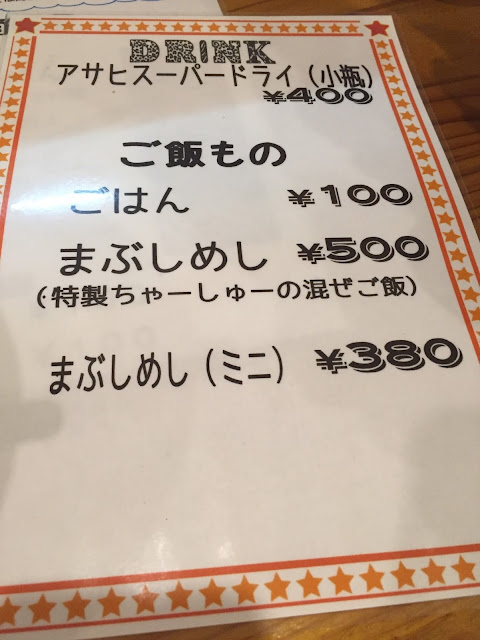 DRINK
アサヒスーパードライ(小瓶)
¥400
ご飯もの
ごはん ¥100
まぶしめし ¥500
(特製ちゃーしゅーの混ぜご飯)
まぶしめし(ミニ) ¥380